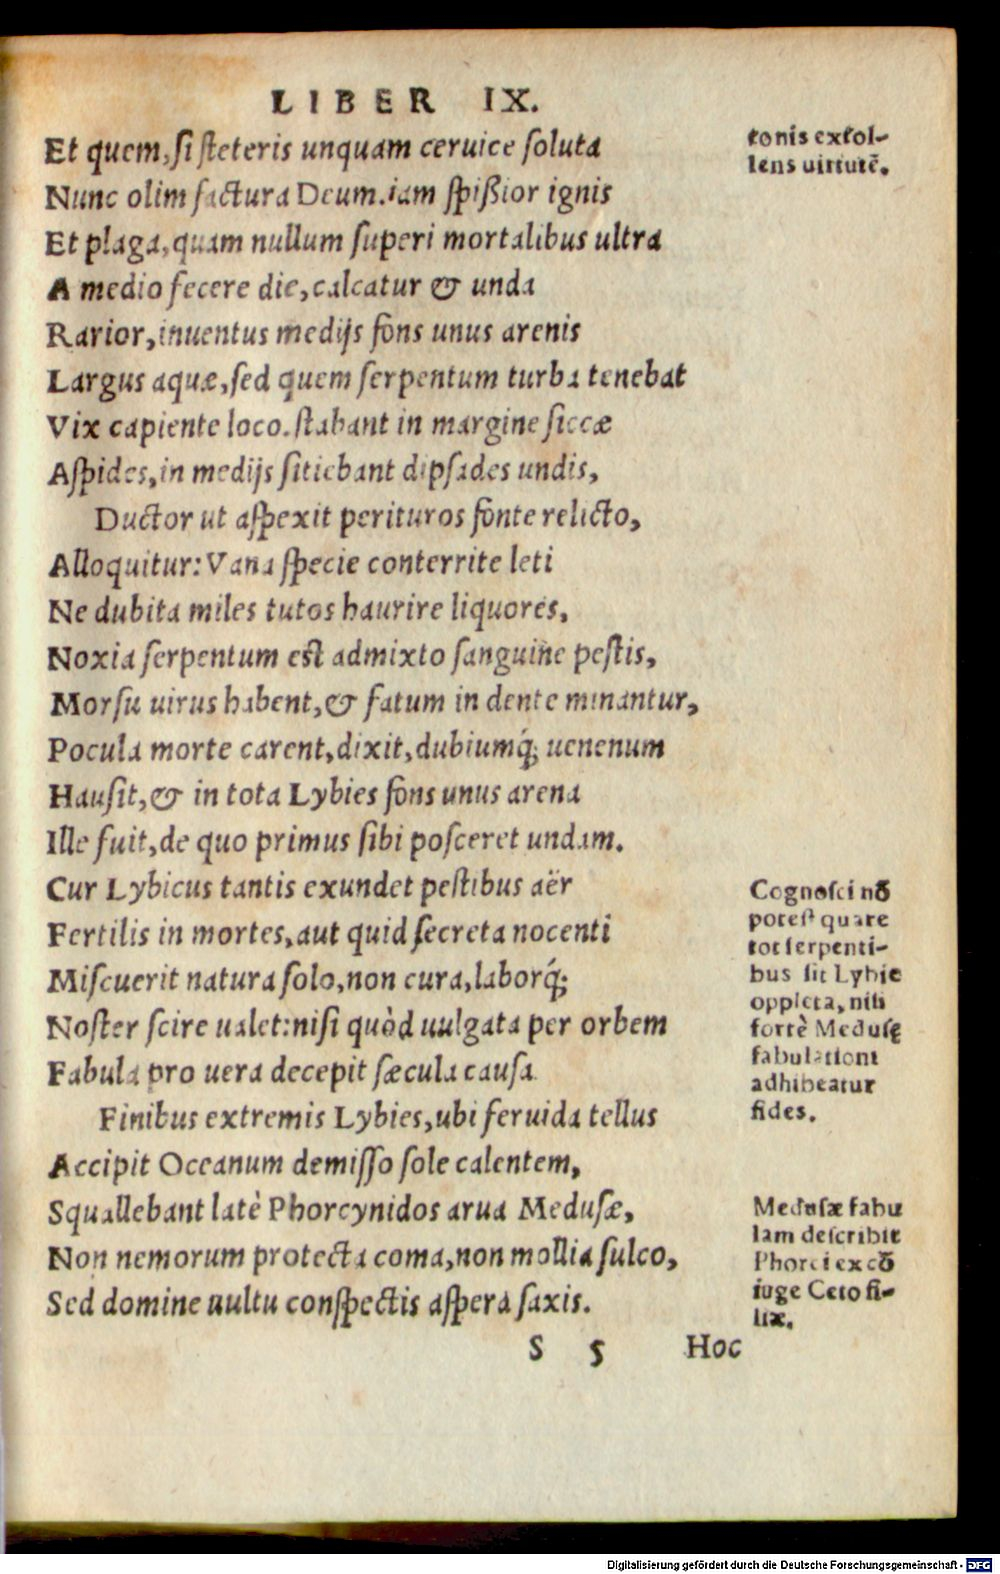 LIBER IX.
Et quem, si steteris unquam ceruice soluta
Nunc olim factura Deum. iam spißior ignis
Et plaga, quam nullum superi mortalibus ultra
A medio fecere die, calcatur & unda
Rarior, inuentus medijs fons unus arenis
Largus aquæ, sed quem serpentum turba tenebat
Vix capiente loco. stabant in margine siccæ
Aspides, in medijs sitiebant dipsades undis,
Ductor ut aspexit perituros fonte relicto,
Alloquitur: Vana specie conterrite leti
Ne dubita miles tutos haurire liquores,
Noxia serpentum est admixto sanguine pestis,
Morsu uirus habent, & fatum in dente minantur,
Pocula morte carent, dixit, dubiumq́; uenenum
Hausit, & in tota Lybies fons unus arena
Ille fuit, de quo primus sibi posceret undam.
Cur Lybicus tantis exundet pestibus aër
Fertilis in mortes, aut quid secreta nocenti
Miscuerit natura solo, non cura, laborq́;
Noster scire ualet: nisi quòd uulgata per orbem
Fabula pro uera decepit sæcula causa
Finibus extremis Lybies, ubi feruida tellus
Accipit Oceanum demisso sole calentem,
Squallebant latè Phorcynidos arua Medusæ,
Non nemorum protecta coma, non mollia sulco,
Sed domine uultu conspectis aspera saxis.
S 5 Hoc
tonis extol-
lens uirtutẽ.
Cognosci nõ
potest quare
tot serpenti-
bus sit Lybie
oppleta, nisi
fortè Medusę
fabulationi
adhibeatur
fides.
Medusæ fabu
lam describit
Phorci ex cõ
iuge Ceto fi-
liæ.
Digitalisierung gefördert durch die Deutsche Forschungsgemeinschaft - DFG